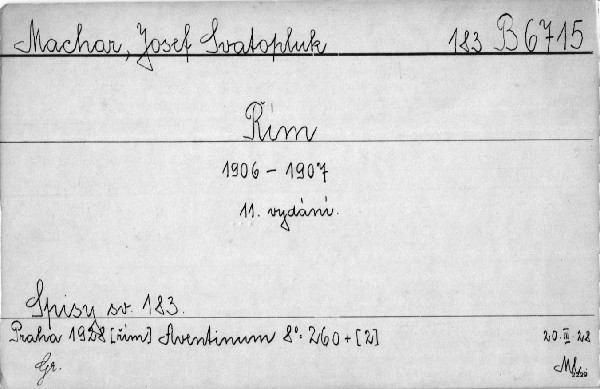 Machar, Josef Svatopluk 183 B 6715
Řím
1906 - 1907
11. vydání.
Spisy sv. 183.
Praha 1928 [řím] Aventinum 8°: 260 + [2] 20. III 28
Gr.